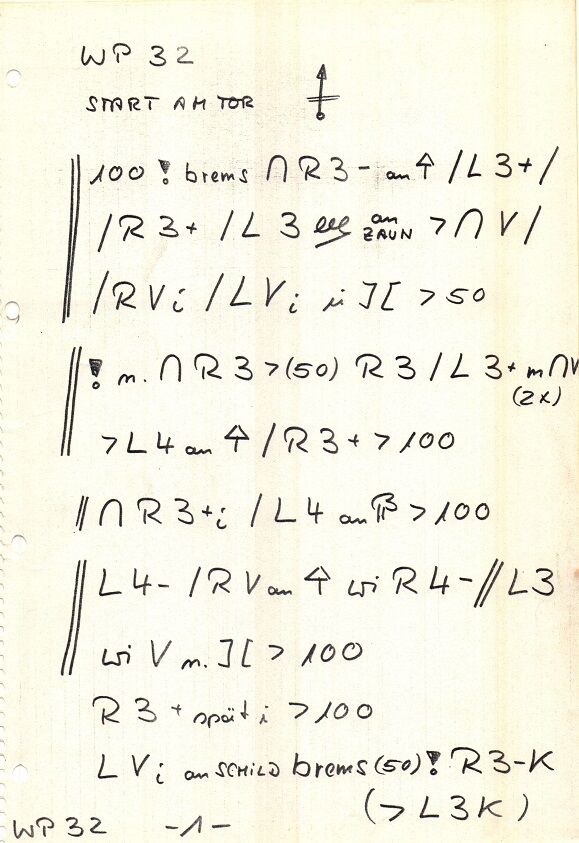 WP 32
START AM TOR
100 ! brems ∩ R3- an ↑ /L3+/
/R3+ /L3 an ZAUN >∩V/
/RVi /LVi ii ][ >50
! n. ∩ R3 >(50) R3 /L3+ m∩V
(2x)
>L4 an ↑ /R3+ >100
∩ R3+i /L4 an >100
L4- /RV an ↑ wi R4- //L3
wi V n. ][ >100
R3+ spät i >100
LVi an SCHILD brems (50) ! R3-K
(>L3K)
WP 32 -1-